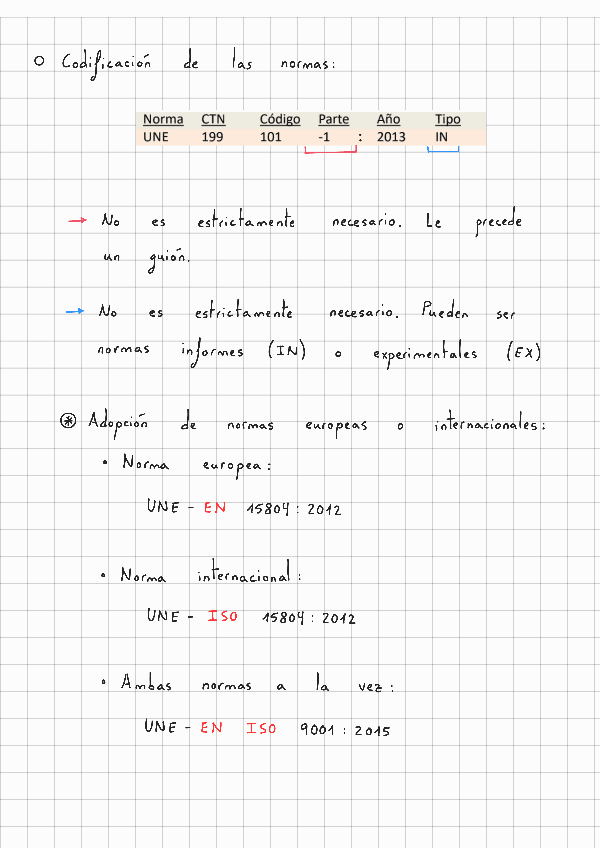 Codificación de las normas:
Norma CTN Código Parte Año Tipo
UNE 199 101 -1 : 2013 IN
→ No es estrictamente necesario. Le precede
un guión.
→ No es estrictamente necesario. Pueden ser
normas informes (IN) o experimentales (EX)
* Adopción de normas europeas o internacionales:
• Norma europea:
UNE - EN 15804 : 2012
• Norma internacional:
UNE - ISO 15804 : 2012
• Ambas normas a la vez:
UNE - EN ISO 9001 : 2015